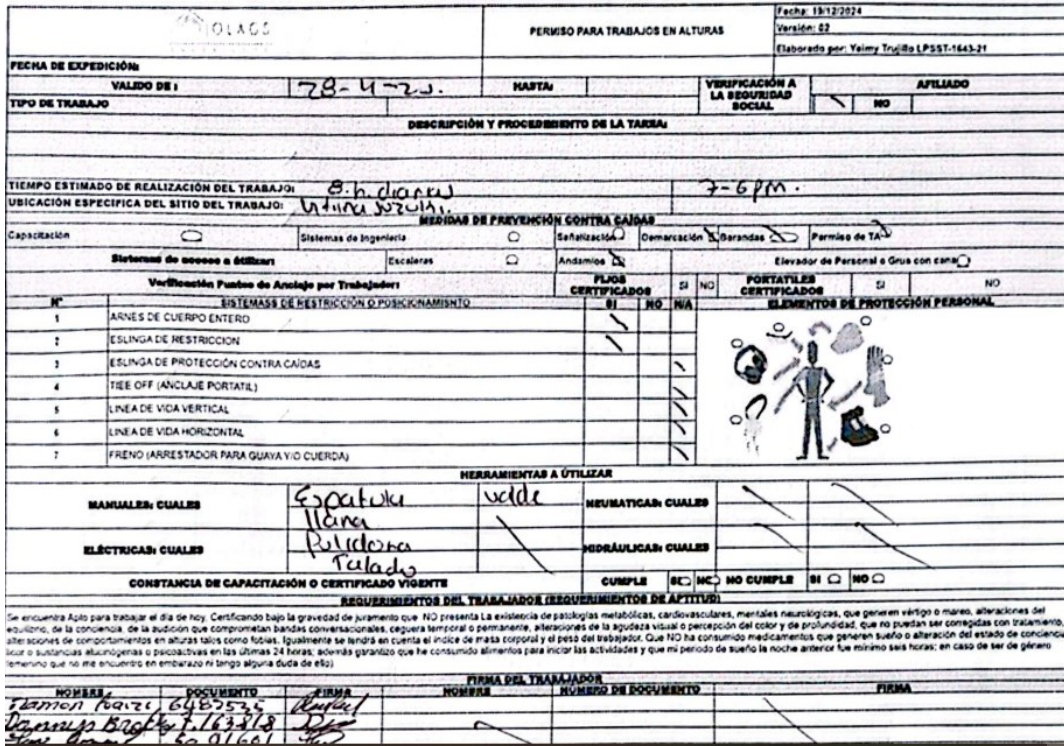 Fecha: 19/12/2024
PERMISO PARA TRABAJOS EN ALTURAS
Versión: 02
Elaborado por: Yeimy Trujillo LPSST-1643-21
FECHA DE EXPEDICIÓN:
VALIDO DE : 28-4-25. HASTA: VERIFICACIÓN A LA SEGURIDAD SOCIAL AFILIADO
TIPO DE TRABAJO NO
DESCRIPCIÓN Y PROCEDEMIENTO DE LA TAREA:
TIEMPO ESTIMADO DE REALIZACIÓN DEL TRABAJO: 8.h. diarias 7-6pm.
UBICACIÓN ESPECIFICA DEL SITIO DEL TRABAJO:
MEDIDAS DE PREVENCIÓN CONTRA CAÍDAS
Capacitación Sistemas de Ingeniería Señalización Demarcación Barandas Permiso de TA
Sistemas de acceso a útilizar: Escaleras Andamios Elevador de Personal o Grua con canas
Verificación Puntos de Anclaje por Trabajador: FIJOS CERTIFICADOS SI NO PORTATILES CERTIFICADOS SI NO
Nº SISTEMASS DE RESTRICCIÓN O POSICIONAMISNTO SI NO N/A ELEMENTOS DE PROTECCIÓN PERSONAL
1 ARNES DE CUERPO ENTERO
2 ESLINGA DE RESTRICCION
3 ESLINGA DE PROTECCIÓN CONTRA CAÍDAS
4 TIEE OFF (ANCLAJE PORTATIL)
5 LINEA DE VIDA VERTICAL
6 LINEA DE VIDA HORIZONTAL
7 FRENO (ARRESTADOR PARA GUAYA Y/O CUERDA)
HERRAMIENTAS A ÚTILIZAR
MANUALES: CUALES Espatula valde NEUMATICAS: CUALES
llana
ELÉCTRICAS: CUALES Pulidora HIDRÁULICAS: CUALES
Taladro
CONSTANCIA DE CAPACITACIÓN O CERTIFICADO VIGENTE CUMPLE SI NO NO CUMPLE SI NO
REQUERIMIENTOS DEL TRABAJADOR (REQUERIMIENTOS DE APTITUD)
Se encuentra Apto para trabajar el día de hoy, Certificando bajo la gravedad de juramento que NO presenta La existencia de patologías metabólicas, cardiovasculares, mentales neurológicas, que generen vértigo o mareo, alteraciones del
equilibrio, de la conciencia, de la audicion que comprometan bandas conversacionales, ceguera temporal o permanente, alteraciones de la agudeza visual o percepción del color y de profundidad, que no puedan ser corregidas con tratamiento,
alteraciones de comportamientos en alturas tales como fobias. Igualmente se tendrá en cuenta el índice de masa corporal y el peso del trabajador. Que NO ha consumido medicamentos que generen sueño o alteración del estado de conciencia,
licor o sustancias alucinógenas o psicoactivas en las últimas 24 horas; además garantizo que he consumido alimentos para iniciar las actividades y que mi periodo de sueño la noche anterior fue mínimo seis horas; en caso de ser de género
femenino que no me encuentro en embarazo ni tengo alguna duda de ello)
FIRMA DEL TRABAJADOR
NOMBRE DOCUMENTO FIRMA NOMBRE NÚMERO DE DOCUMENTO FIRMA
Ramon 6487525
7.163818